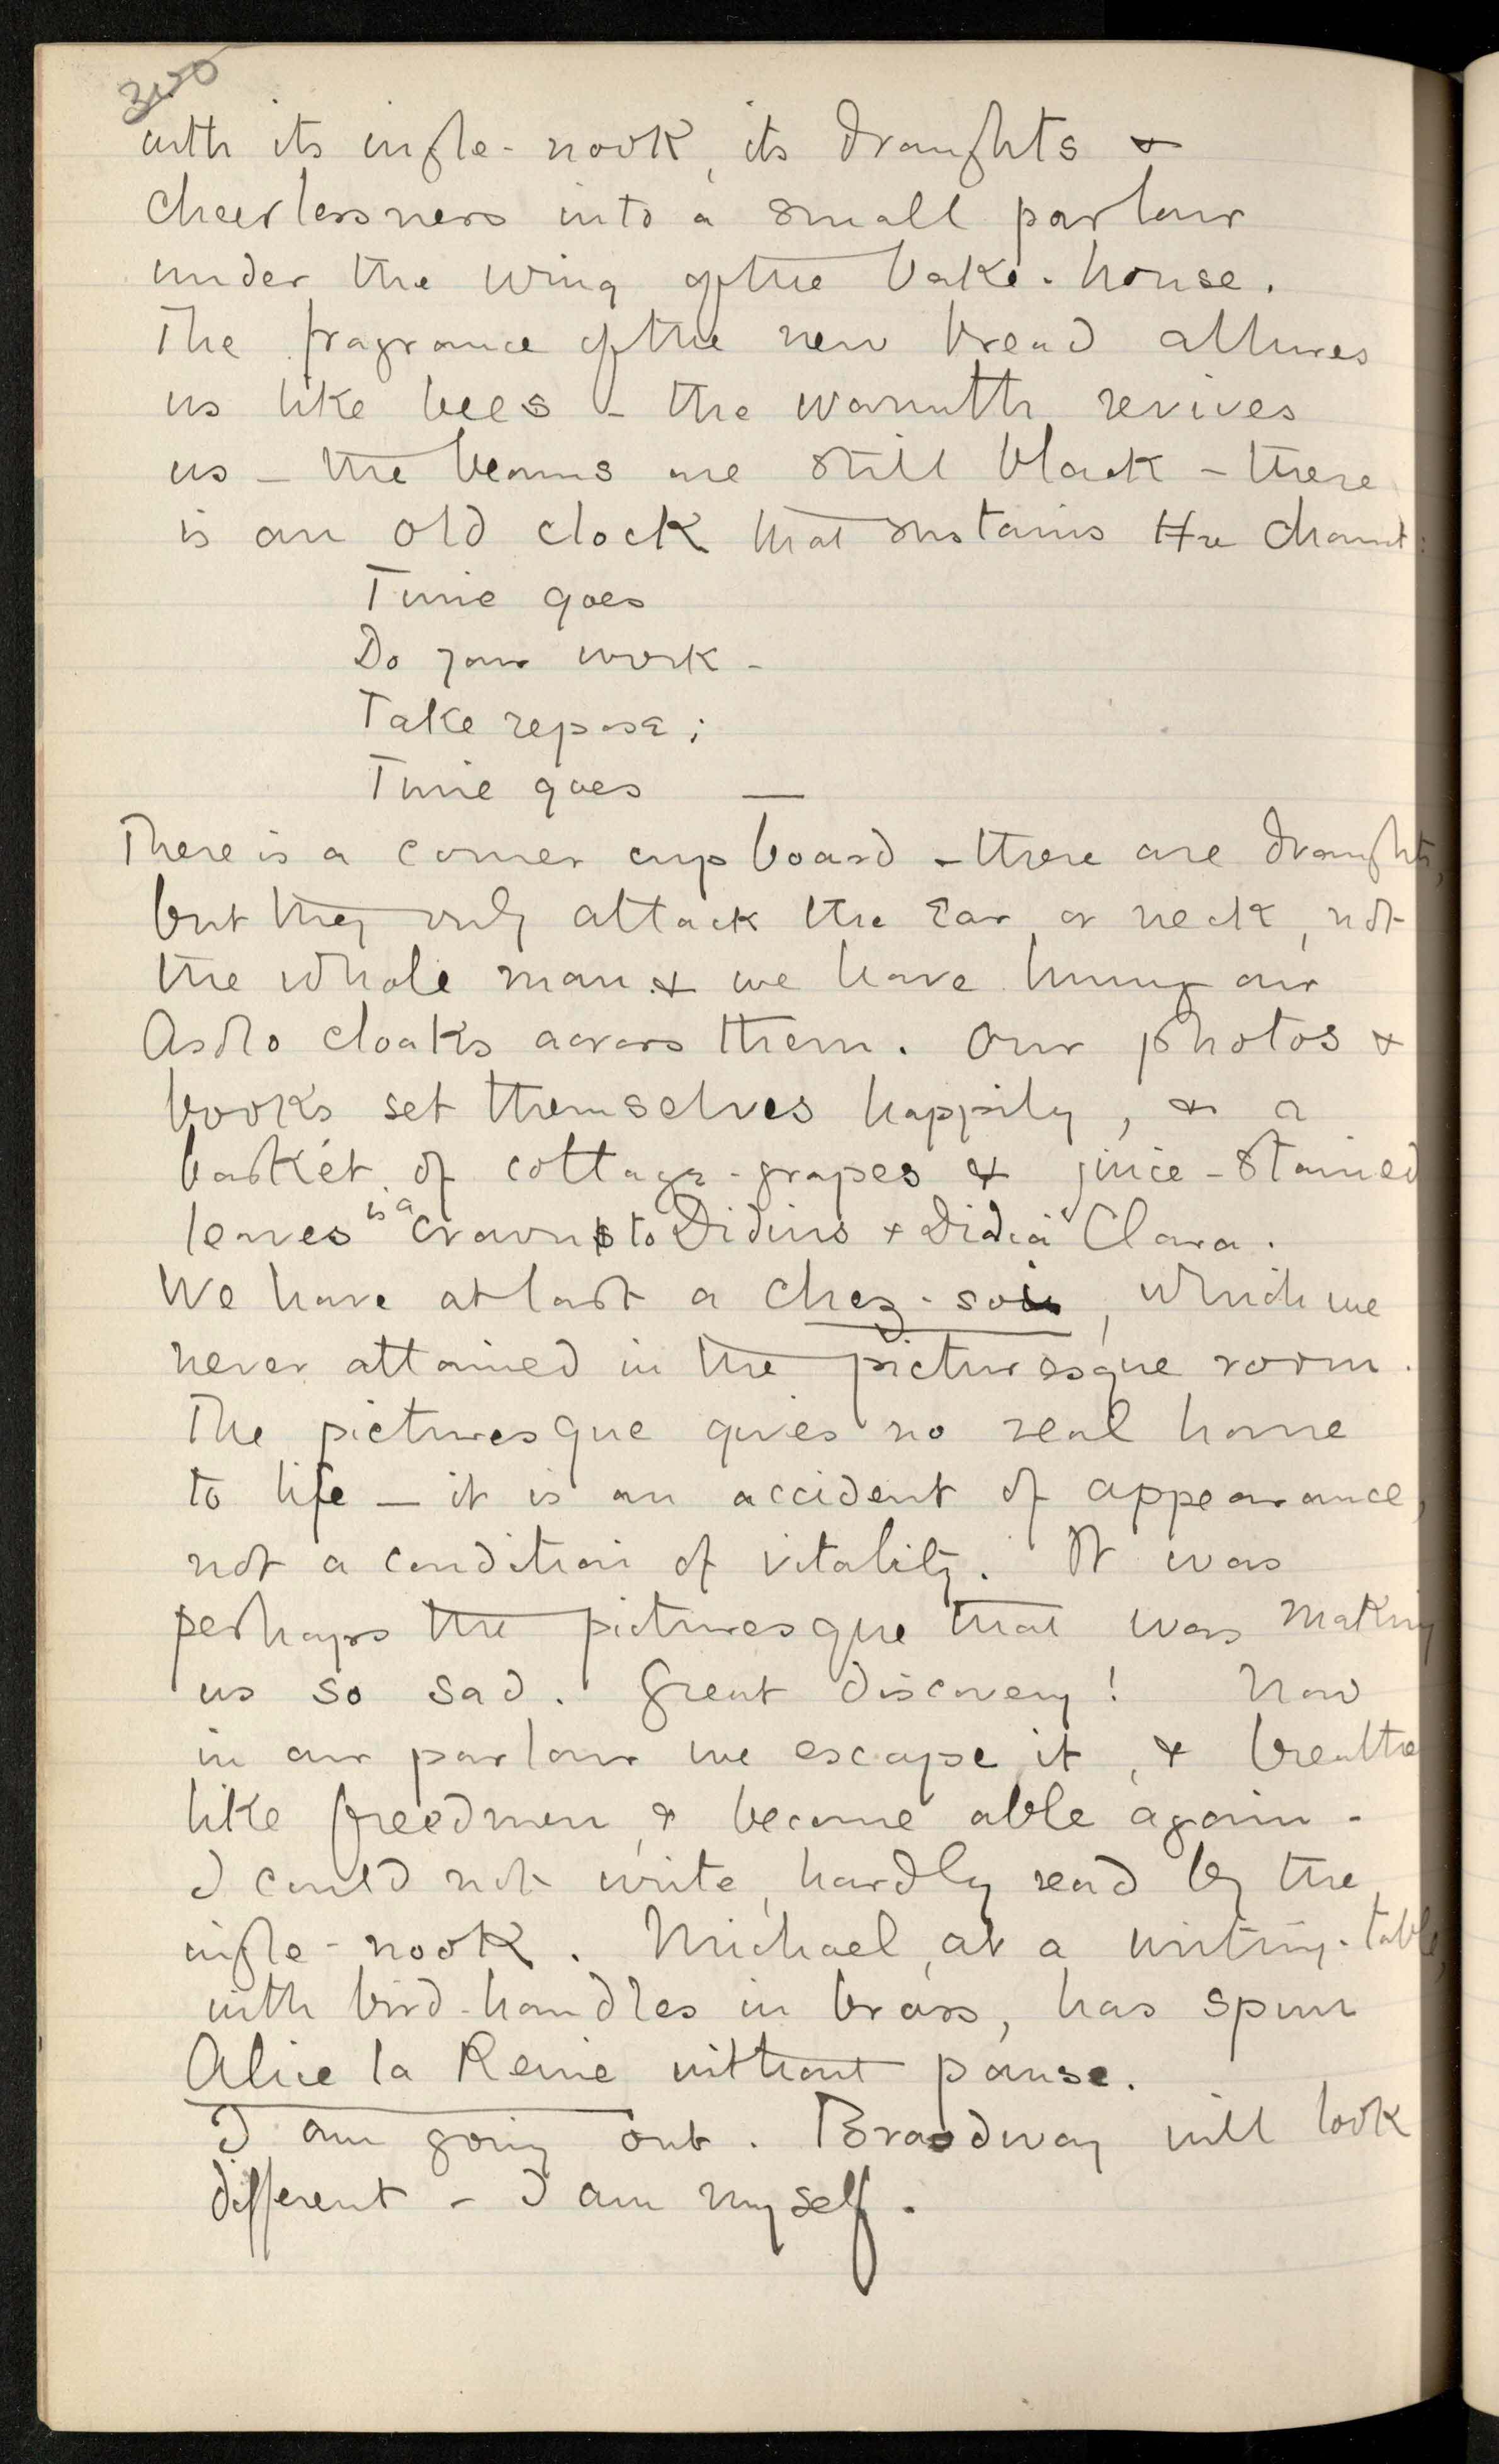 with its ingle-nook, its draughts &
cheerlessness into a small parlour
under the wing of the bake-house.
The fragrance of the new bread allures
us like bees – the warmth revives
us – the beams are still black – there
is an old clock that sustains the chant:
Time goes
Do your work –
Take repose;
Time goes —
There is a corner cupboard – there are draughts,
but they only attack the ear or neck, not
the whole man & we have hung our
Asolo cloaks across them. Our photos &
books set themselves happily, & a
basket of cottage-grapes & juice-stained
leaves is a crown to Didius & Didia Clara.
We have at last a chez-soi, which we
never attained in the picturesque room.
The picturesque gives no real home
to life – it is an accident of appearance,
not a condition of vitality. It was
perhaps the picturesque that was making
us so sad. Great discovery! Now
in our parlour we escape it, & breathe
like freedmen, & become able again –
I could not write, hardly read by the
ingle-nook. Michael, at a writing-table,
with bird-handles in brass, has spun
Alice la Reine without pause.
I am going out. Broadway will look
different – I am myself.